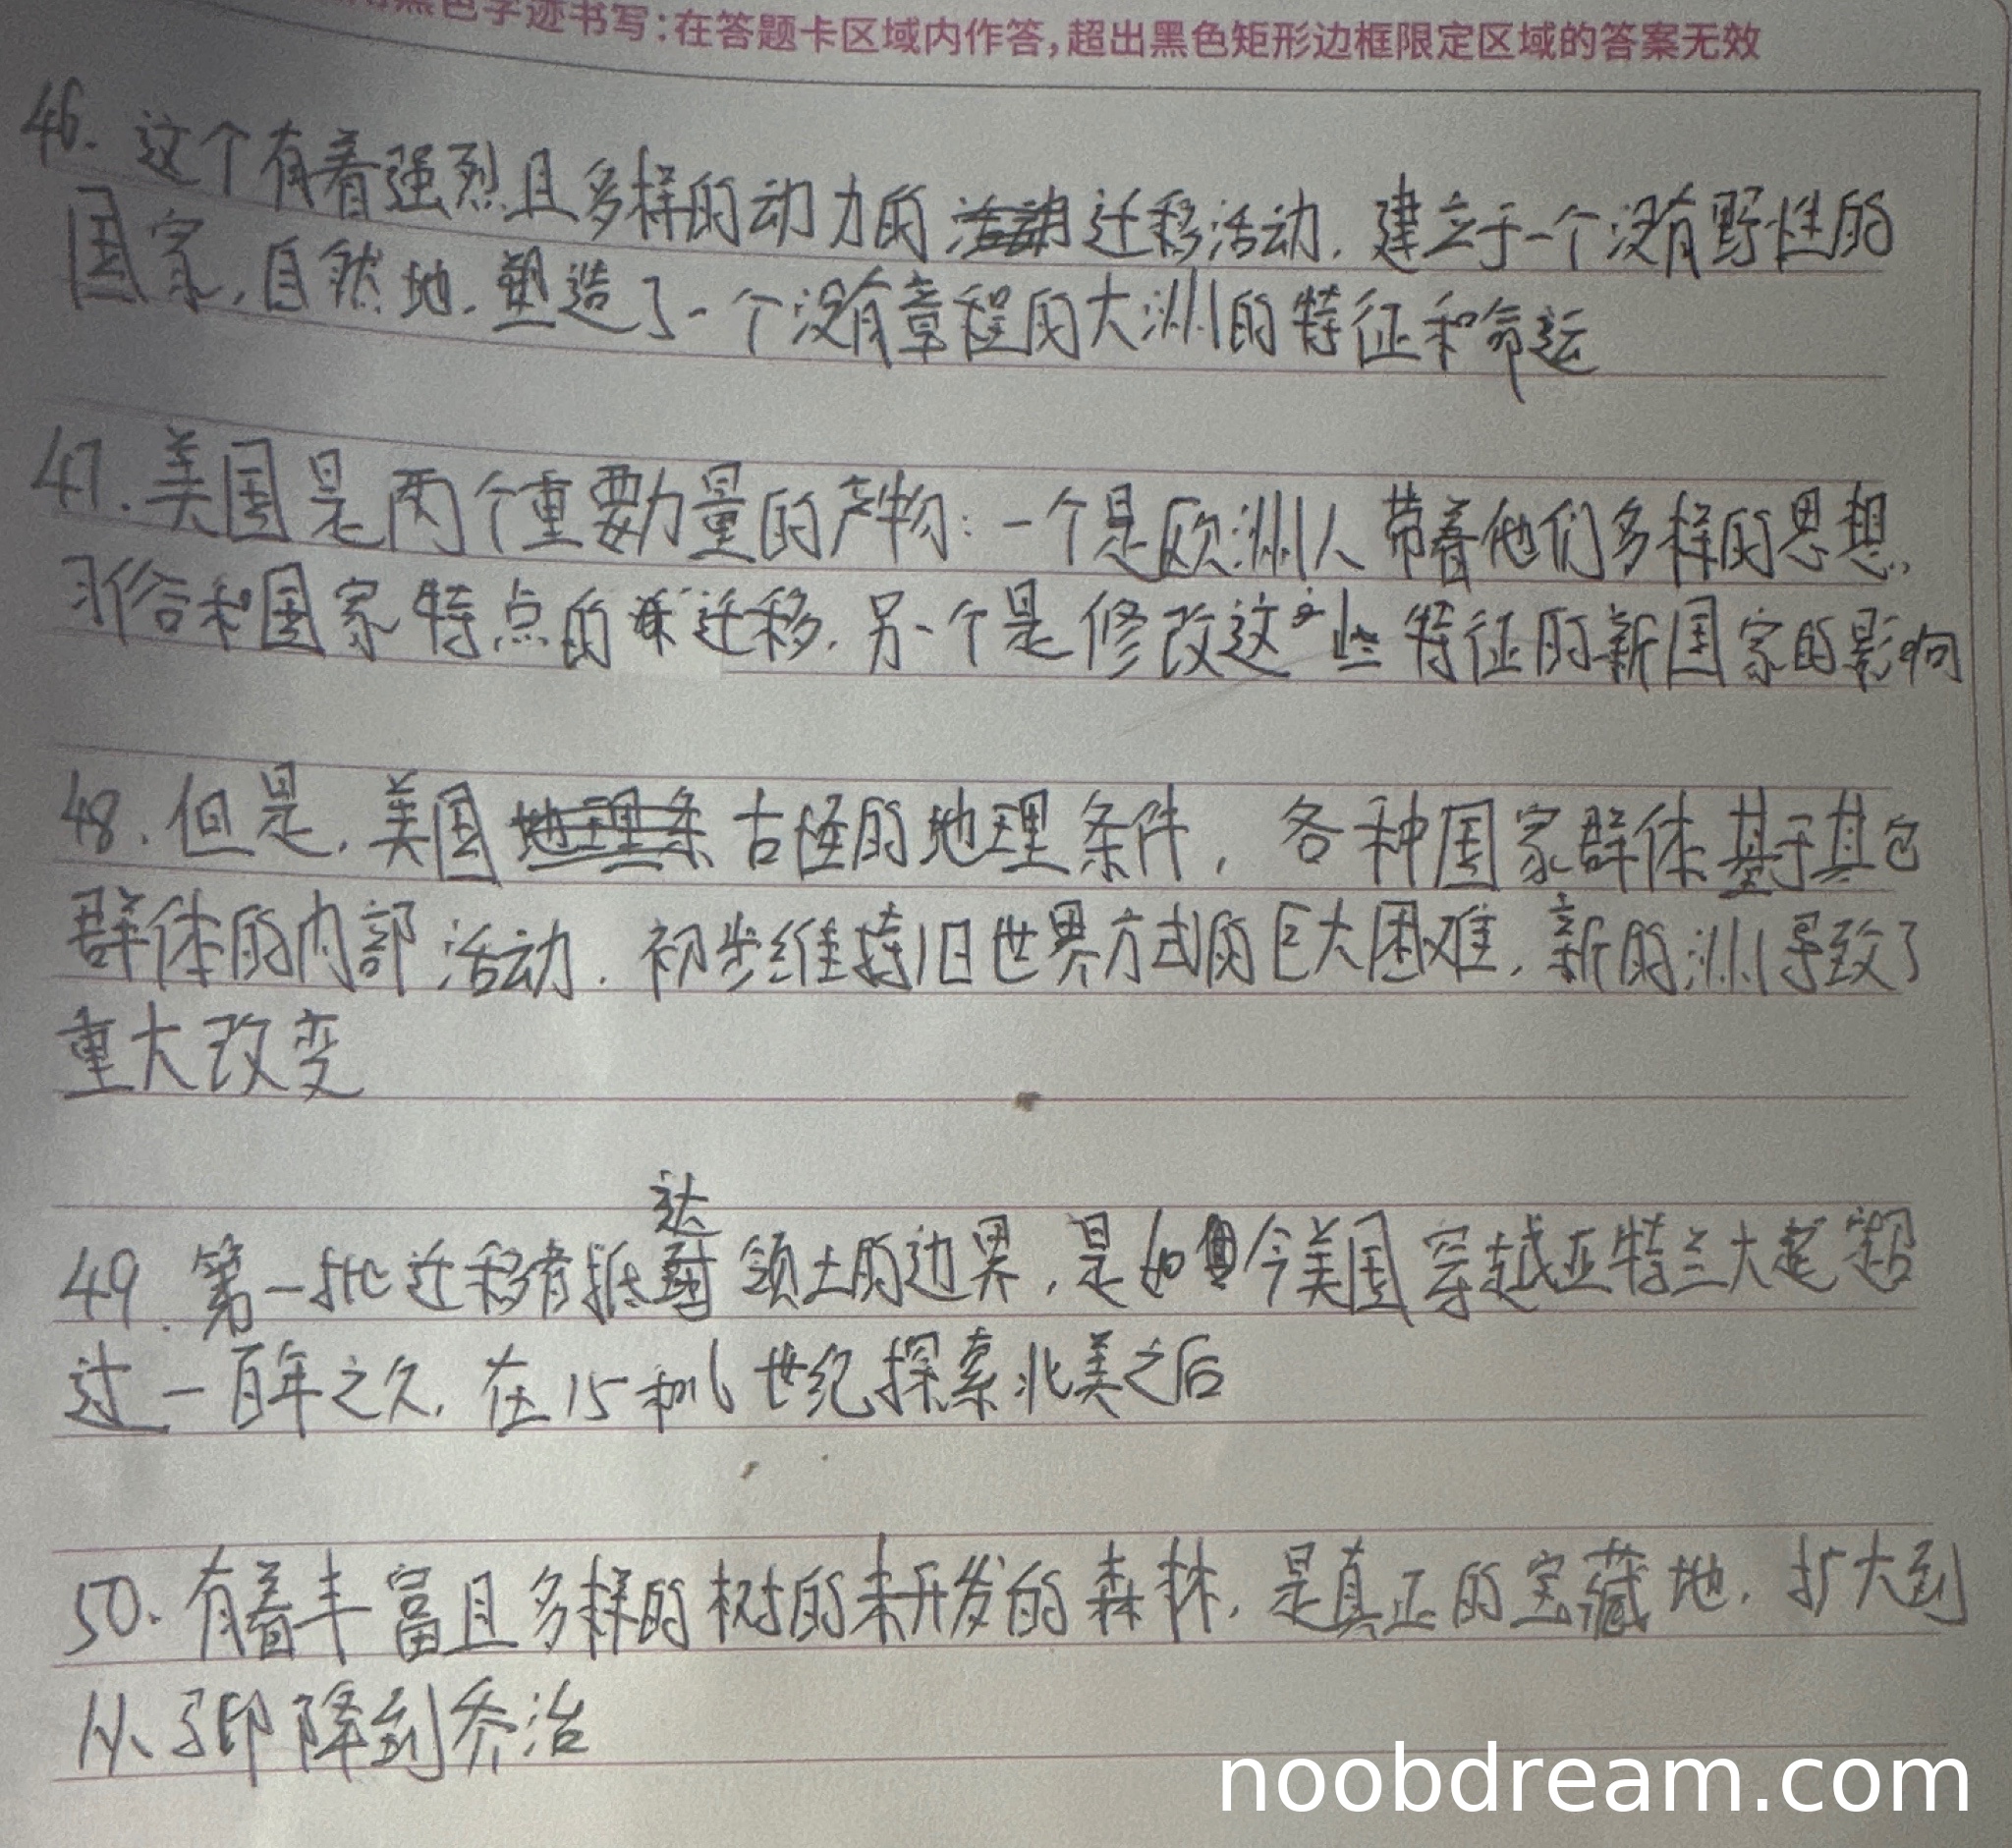 黑色字迹书写:在答题卡区域内作答,超出黑色矩形边框限定区域的答案无效
46. 这个有着强烈且多样的动力的迁移活动,建立于一个没有野性的
国家,自然地,塑造了一个没有章程的大洲的特征和命运
47. 美国是两个重要力量的产物:一个是欧洲人带着他们多样的思想,
习俗和国家特点的迁移,另一个是修改这些特征的新国家的影响
48. 但是,美国古怪的地理条件,各种国家群体基于其它
群体的内部活动,初步维持旧世界方式的巨大困难,新的洲导致了
重大改变
49. 第一批迁移者抵达领土的边界,是如今美国穿越亚特兰大是超
过一百年之久,在15和16世纪探索北美之后
50. 有着丰富且多样的树的未开发的森林,是真正的宝藏地,扩大到
从缅降到乔治
noobdream.com